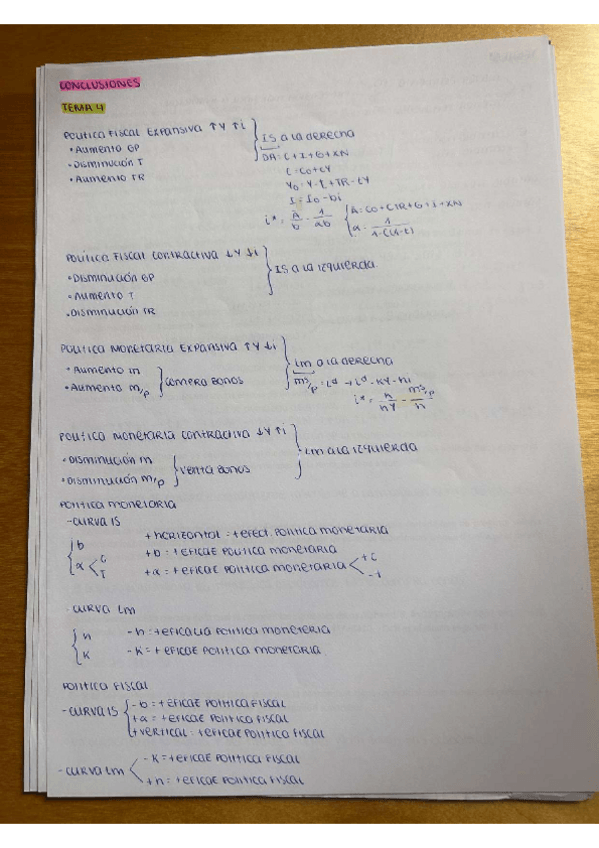 CONCLUSIONES
TEMA 4
POLITICA FISCAL EXPANSIVA ↑Y ↑i
• AUMENTO GP
• DISMINUCIÓN T
• AUMENTO TR
IS A LA DERECHA
DA: C+I+G+XN
C = C0+CY
I = I0 - bi
i* = A/b - 1/αb
A = C0+CTR+G+I+XN
POLÍTICA FISCAL CONTRACTIVA ↓Y ↓i
• DISMINUCIÓN GP
• AUMENTO T
• DISMINUCIÓN TR
IS A LA IZQUIERDA
POLITICA MONETARIA EXPANSIVA ↑Y ↓i
• AUMENTO m
• AUMENTO m/p
COMPRA BONOS
LM A LA DERECHA
POLITICA MONETARIA CONTRACTIVA ↓Y ↑i
• DISMINUCIÓN m
• DISMINUCIÓN m/p
VENTA BONOS
LM A LA IZQUIERDA
POLITICA MONETARIA
- CURVA IS
+ HORIZONTAL = + EFECT. POLITICA MONETARIA
b
+ b = + EFICAZ POLITICA MONETARIA
α < C T
+ α = + EFICAZ POLITICA MONETARIA < + C - T
- CURVA LM
h
- h = + EFICACIA POLITICA MONETERIA
K
- K = + EFICAZ POLITICA MONETARIA
POLITICA FISCAL
- CURVA IS
- b = + EFICAZ POLITICA FISCAL
+ α = + EFICAZ POLITICA FISCAL
+ VERTICAL = + EFICAZ POLITICA FISCAL
- CURVA LM
- K = + EFICAZ POLITICA FISCAL
+ h = + EFICAZ POLITICA FISCAL